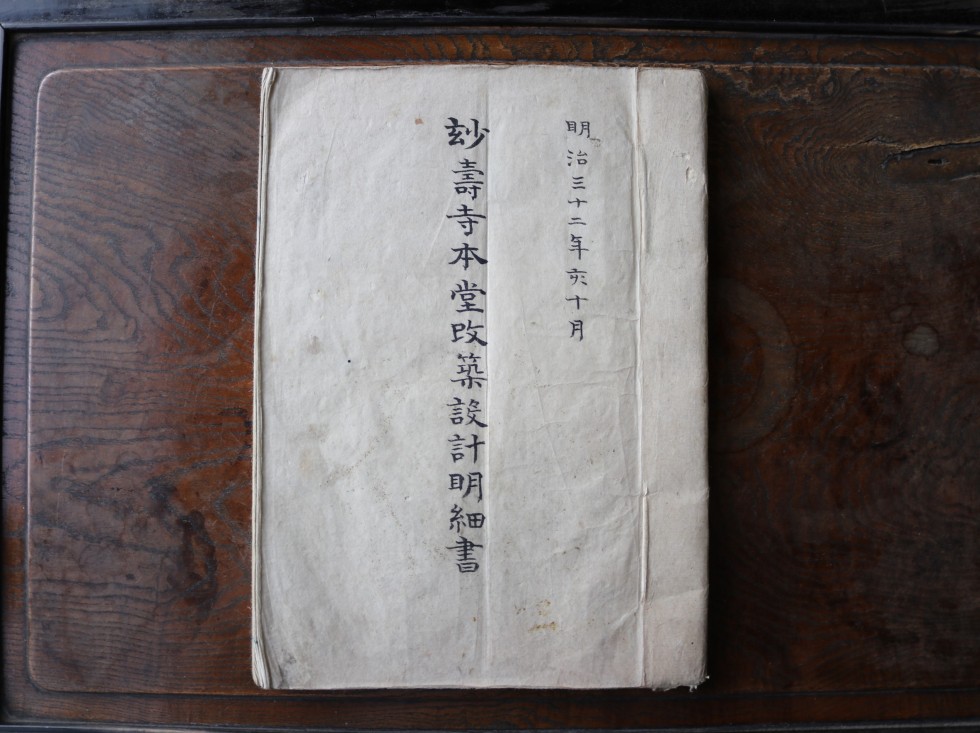 明治三十二年亥十月
玅壽寺本堂改築設計明細書